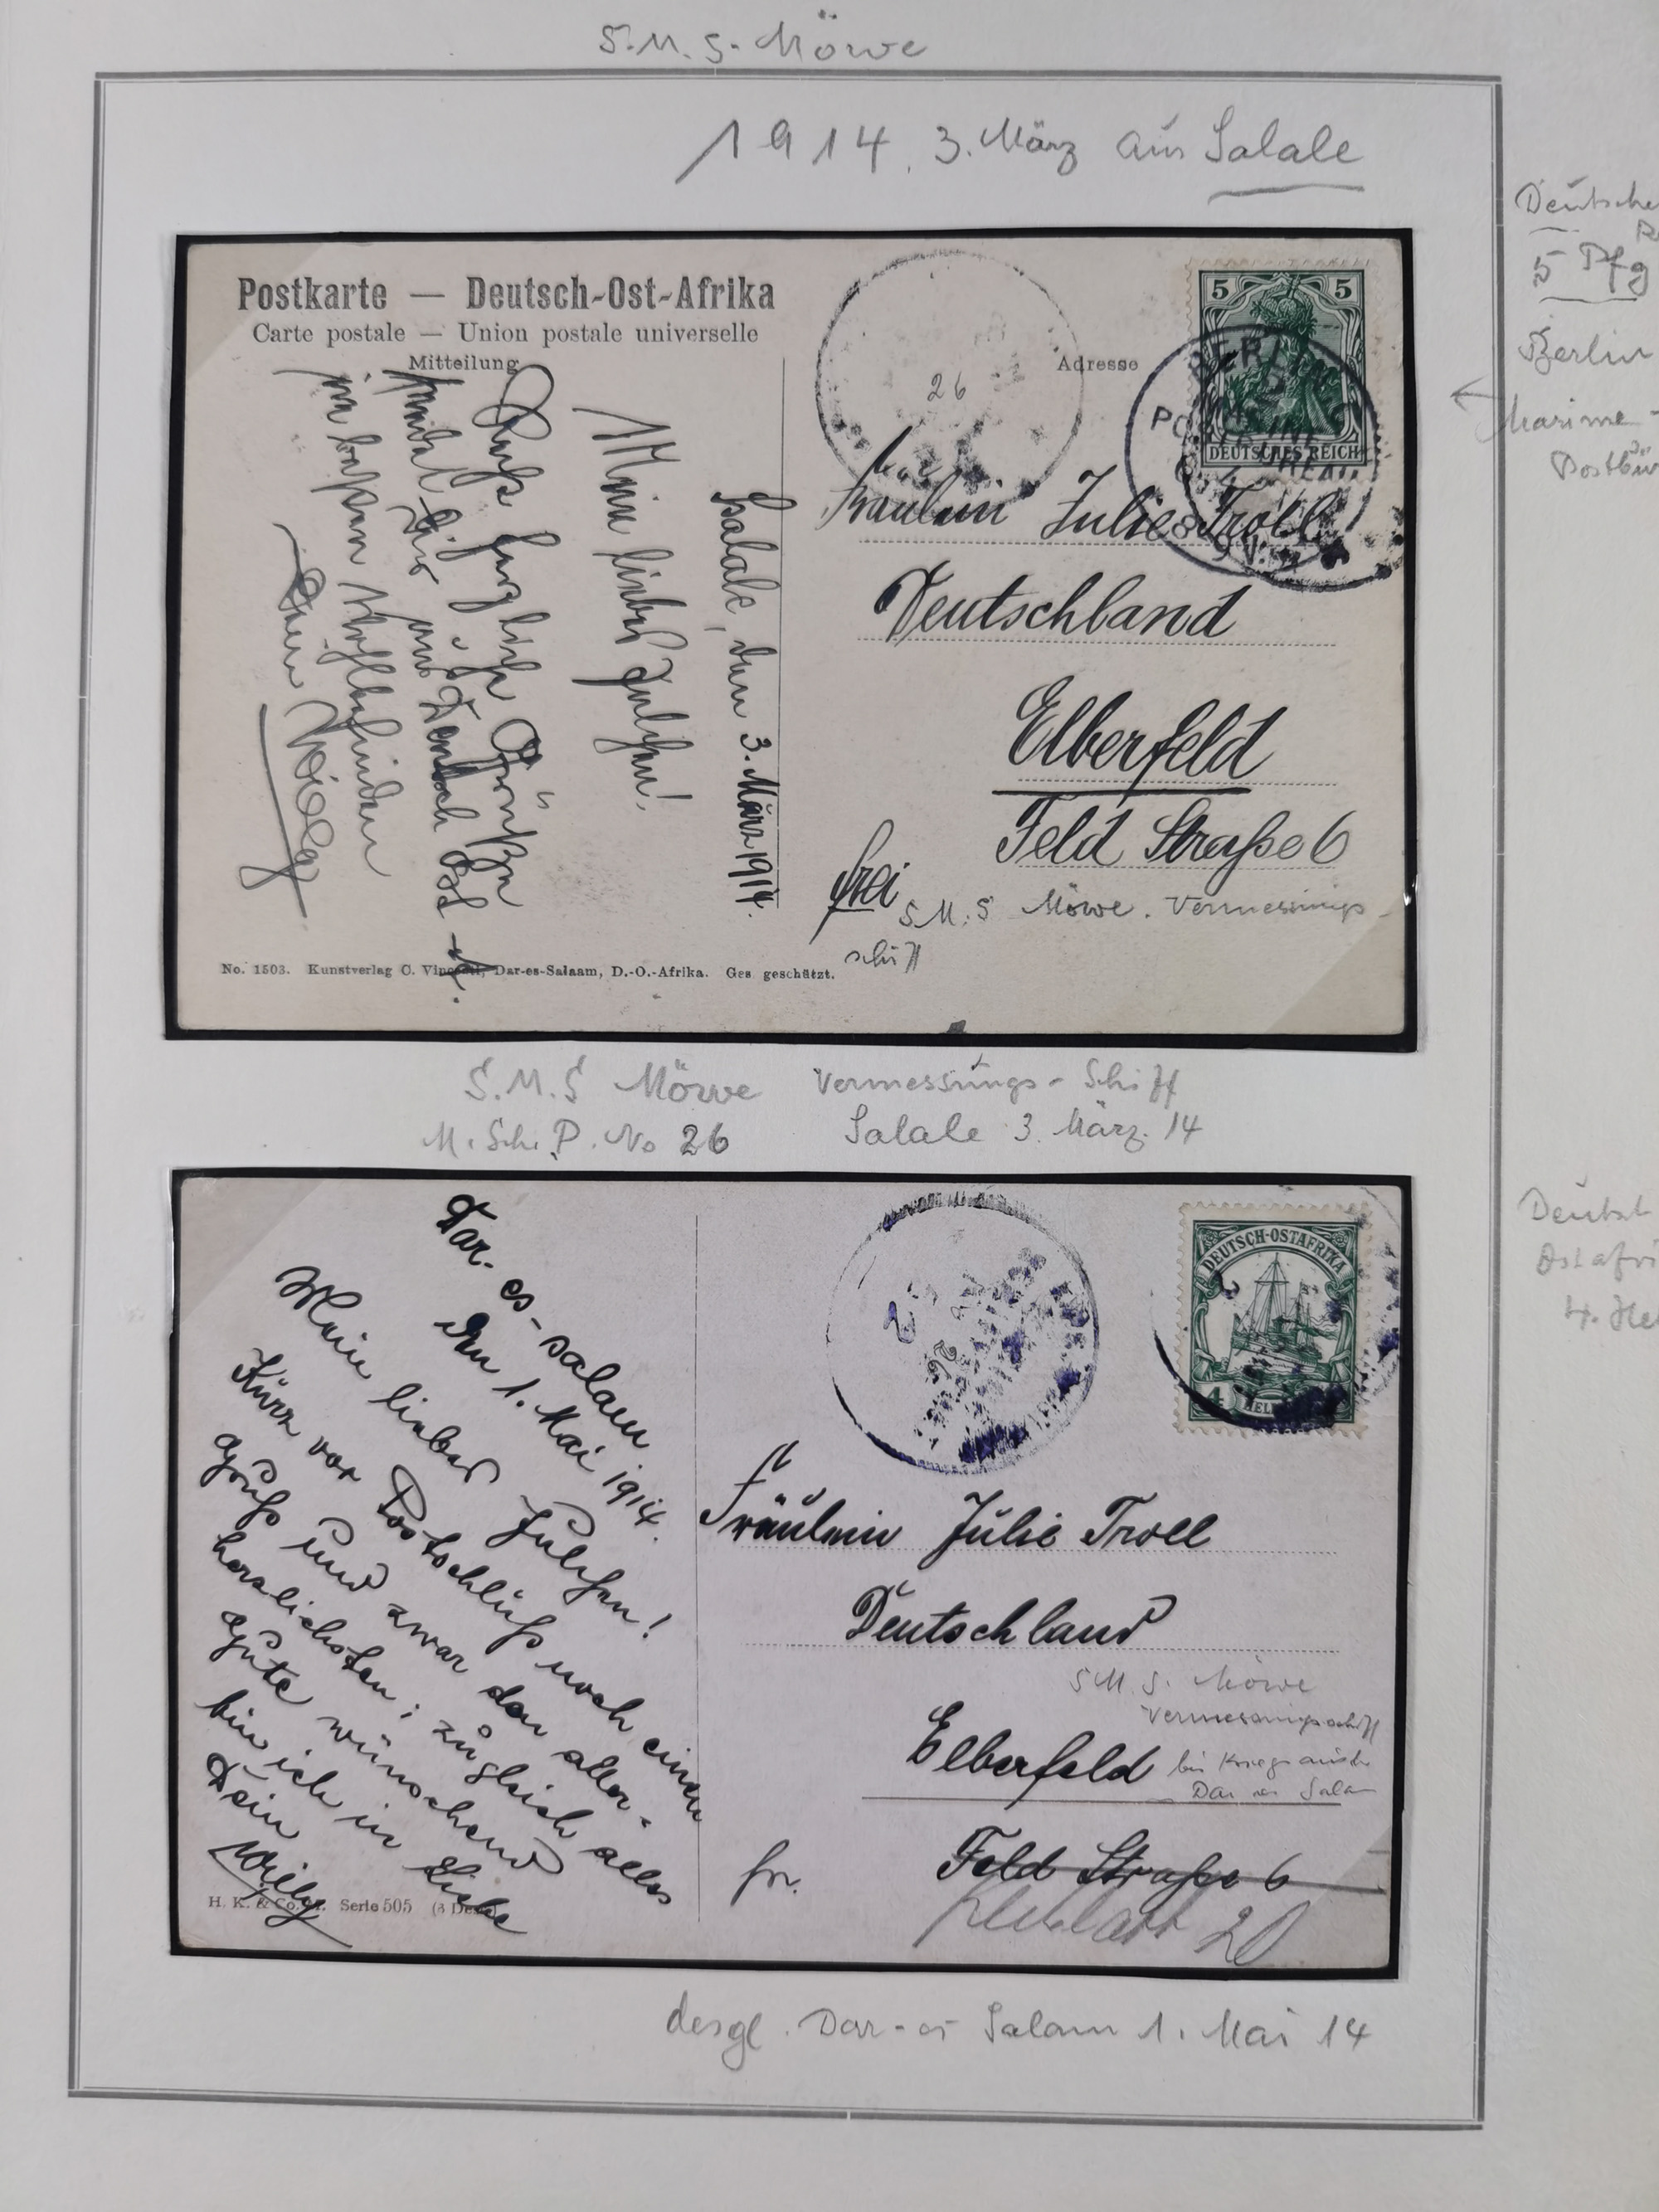 S.M.S. Möwe
1914. 3. März aus Salale
Deutsche
5 Pfg
Berlin
Marine-
Postbür
Postkarte — Deutsch-Ost-Afrika
Carte postale — Union postale universelle
Mitteilung
Adresse
26
5 5
DEUTSCHES REICH
BERLIN
MARINE
Salale, den 3. März 1914.
Mein liebes Julchen!
herzliche Grüße
Dein Willy
Fräulein Julie Troll
Deutschland
Elberfeld
Feld Straße 6
frei
S.M.S Möwe. Vermessungs-
schiff
No. 1503. Kunstverlag C. Vincenti, Dar-es-Salaam, D.-O.-Afrika. Ges. geschützt.
S.M.S Möwe Vermessungs-Schiff
M. Sch. P. No 26 Salale 3. März. 14
Dar-es-salam
Den 1. Mai 1914.
Mein liebes Julchen!
Kurz vor Postschluß noch einen
Gruß und zwar den aller-
herzlichsten; zugleich alles
Gute wünschend
bin ich in Liebe
Dein
Willy
H. K. & Co. Serie 505
DEUTSCH-OSTAFRIKA
4 HELLER
Fräulein Julie Troll
Deutschland
S.M.S. Möwe
Vermessungsschiff
Elberfeld
bis Kriegsausbr
Dar es Salam
fr.
Feld Straße 6
20
Deutsch
Ostafri
4. Hel
desgl. Dar-es Salam 1. Mai 14